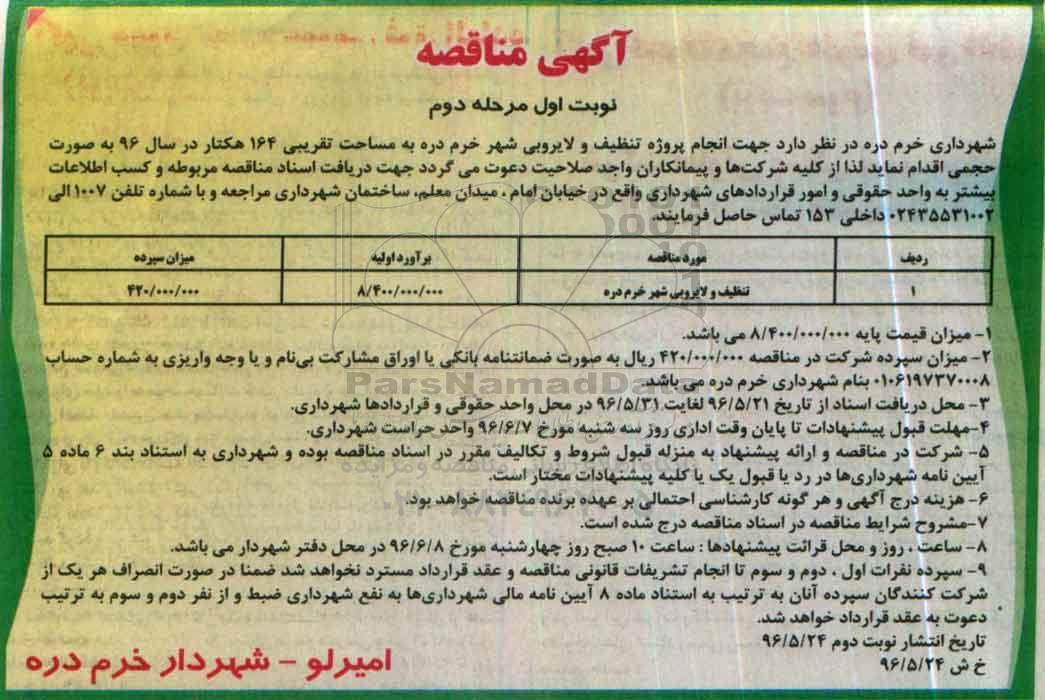 آگهی مناقصه
نوبت اول مرحله دوم
شهرداری خرم دره در نظر دارد جهت انجام پروژه تنظیف و لایروبی شهر خرم دره به مساحت تقریبی ۱۶۴ هکتار در سال ۹۶ به صورت
حجمی اقدام نماید لذا از کلیه شرکت‌ها و پیمانکاران واجد صلاحیت دعوت می گردد جهت دریافت اسناد مناقصه مربوطه و کسب اطلاعات
بیشتر به واحد حقوقی و امور قراردادهای شهرداری واقع در خیابان امام ، میدان معلم، ساختمان شهرداری مراجعه و با شماره تلفن ۱۰۰۷ الی
۰۲۴۳۵۵۳۱۰۰۲ داخلی ۱۵۳ تماس حاصل فرمایند.
ردیف مورد مناقصه برآورد اولیه میزان سپرده
۱ تنظیف و لایروبی شهر خرم دره ۸/۴۰۰/۰۰۰/۰۰۰ ۴۲۰/۰۰۰/۰۰۰
۱- میزان قیمت پایه ۸/۴۰۰/۰۰۰/۰۰۰ می باشد.
۲- میزان سپرده شرکت در مناقصه ۴۲۰/۰۰۰/۰۰۰ ریال به صورت ضمانتنامه بانکی یا اوراق مشارکت بی‌نام و یا وجه واریزی به شماره حساب
۰۱۰۶۱۹۷۳۷۰۰۰۸ بنام شهرداری خرم دره می باشد.
ParsNamadData
۳- محل دریافت اسناد از تاریخ ۹۶/۵/۲۱ لغایت ۹۶/۵/۳۱ در محل واحد حقوقی و قراردادها شهرداری.
۴-مهلت قبول پیشنهادات تا پایان وقت اداری روز سه شنبه مورخ ۹۶/۶/۷ واحد حراست شهرداری.
۵- شرکت در مناقصه و ارائه پیشنهاد به منزله قبول شروط و تکالیف مقرر در اسناد مناقصه بوده و شهرداری به استناد بند ۶ ماده ۵
آیین نامه شهرداری‌ها در رد یا قبول یک یا کلیه پیشنهادات مختار است.
۶- هزینه درج آگهی و هر گونه کارشناسی احتمالی بر عهده برنده مناقصه خواهد بود.
۷-مشروح شرایط مناقصه در اسناد مناقصه درج شده است.
۸- ساعت ، روز و محل قرائت پیشنهادها : ساعت ۱۰ صبح روز چهارشنبه مورخ ۹۶/۶/۸ در محل دفتر شهردار می باشد.
۹- سپرده نفرات اول ، دوم و سوم تا انجام تشریفات قانونی مناقصه و عقد قرارداد مسترد نخواهد شد ضمنا در صورت انصراف هر یک از
شرکت کنندگان سپرده آنان به ترتیب به استناد ماده ۸ آیین نامه مالی شهرداری‌ها به نفع شهرداری ضبط و از نفر دوم و سوم به ترتیب
دعوت به عقد قرارداد خواهد شد.
تاریخ انتشار نوبت دوم ۹۶/۵/۲۴
خ ش ۹۶/۵/۲۴
امیرلو - شهردار خرم دره